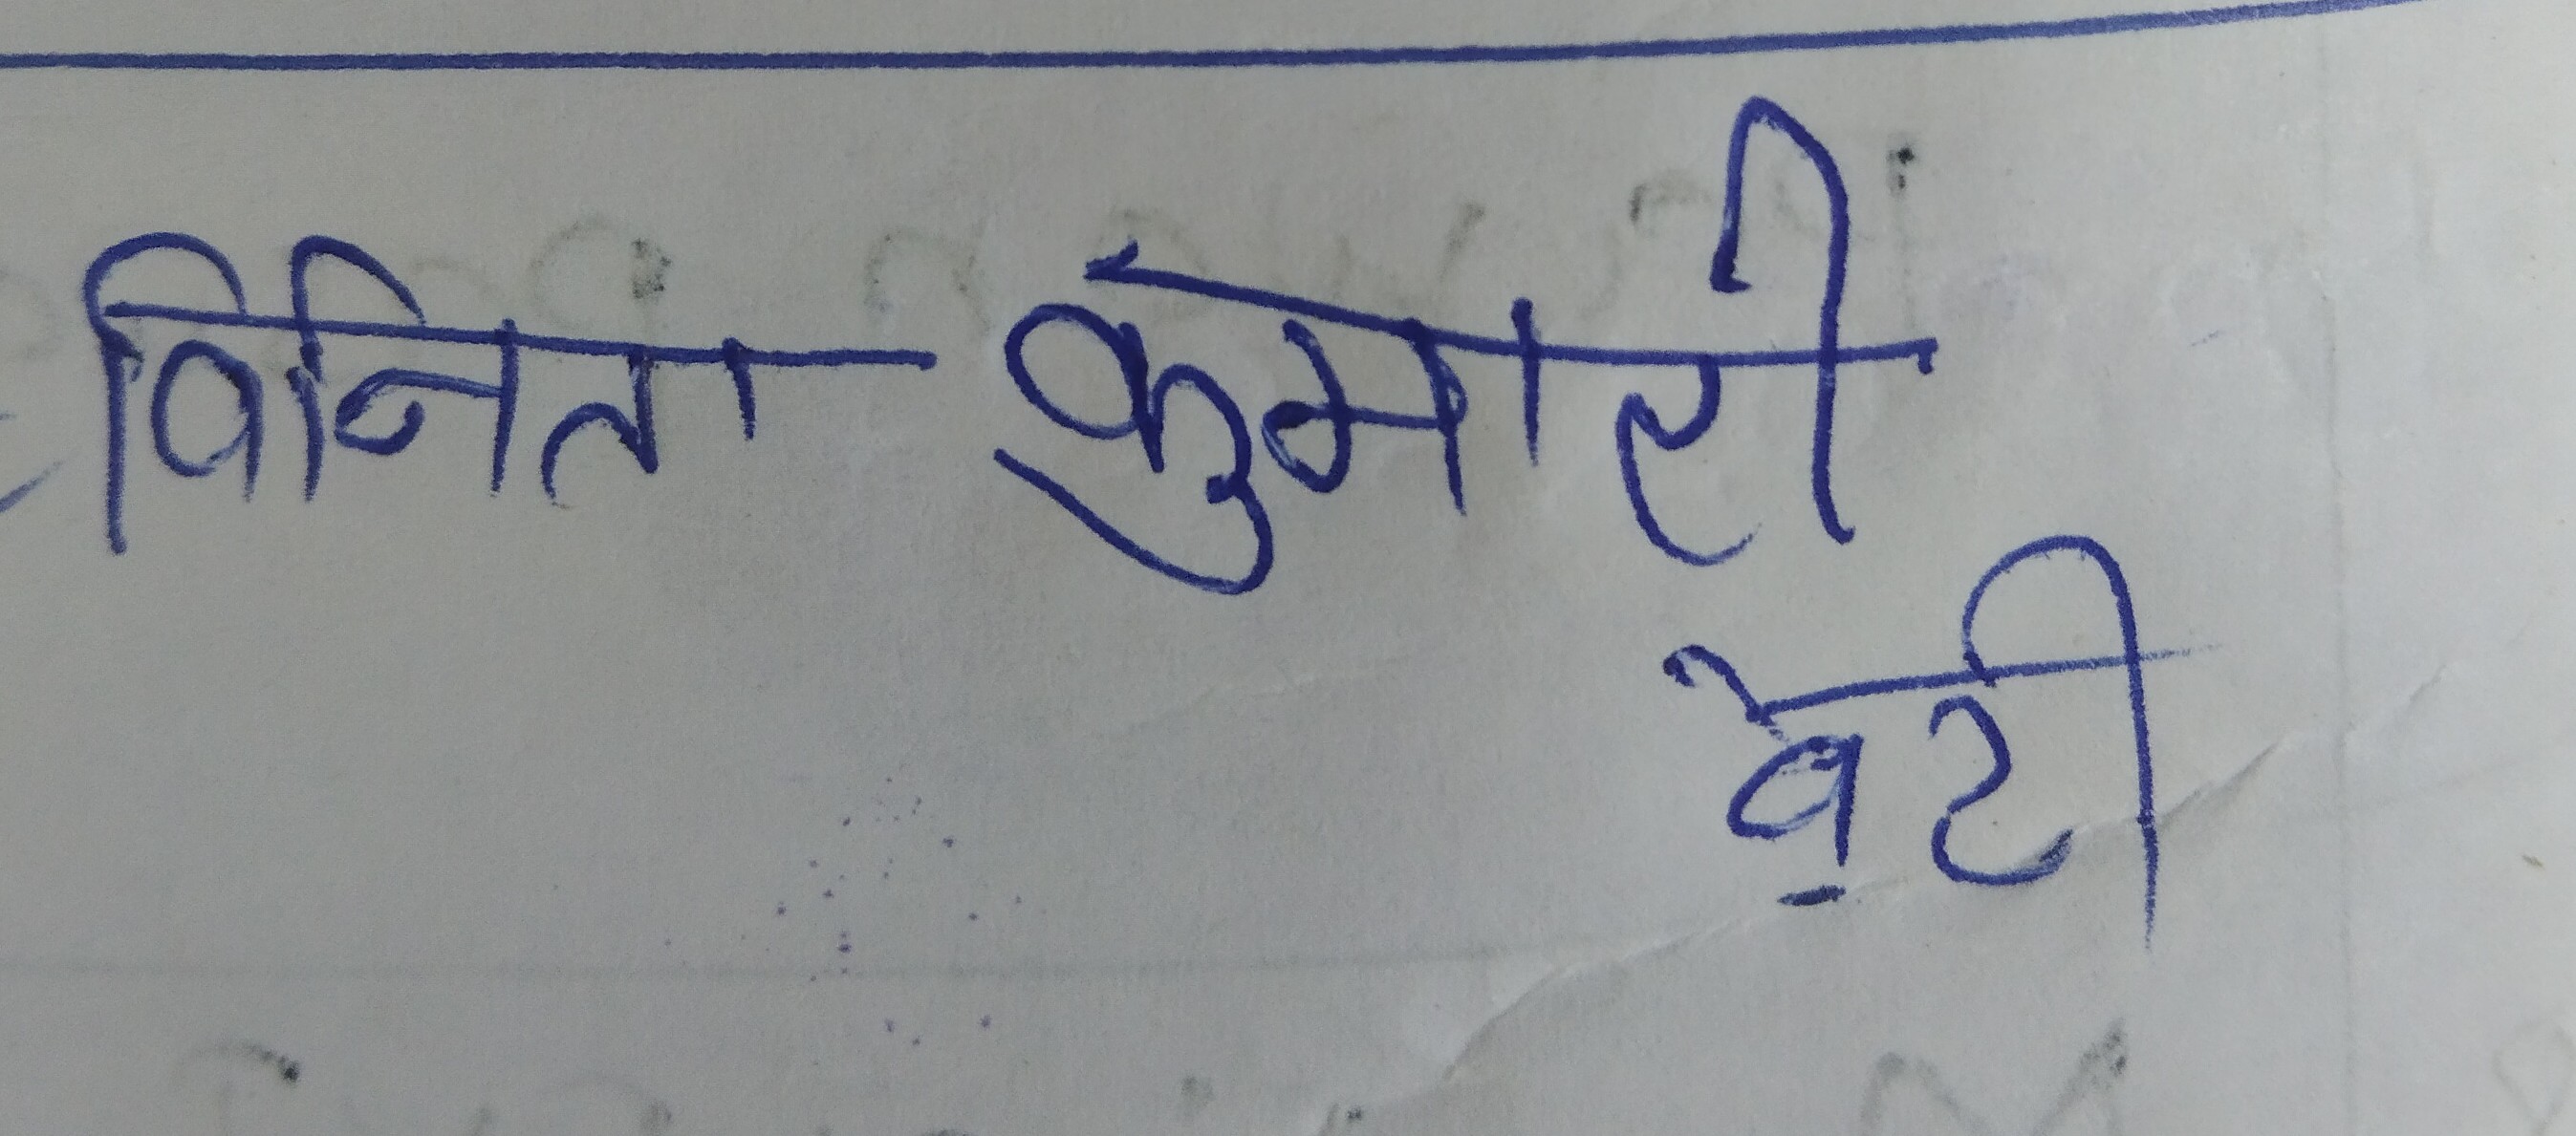 विनिता कुमारी
बेटी